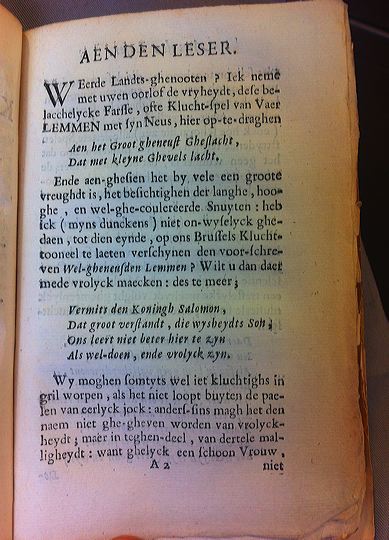 AEN DEN LESER.
WEerde Landts-ghenooten ? Ick neme
met uwen oorlof de vryheydt, dese be-
lacchelycke Farsse, ofte Klucht-spel van Vaer
LEMMEN met syn Neus, hier op-te-draghen
Aen het Groot gheneust Gheslacht,
Dat met kleyne Ghevels lacht.
Ende aen-ghesien het by vele een groote
vreughdt is, het besichtighen der langhe, hoo-
ghe, en wel-ghe-coulereerde Snuyten : heb
ick ( myns dunckens ) niet on-wyselyck ghe-
daen, tot dien eynde, op ons Brussels Klucht-
tooneel te laeten verschynen den voor-schre-
ven Wel-gheneusden Lemmen ? Wilt u dan daer
mede vrolyck maecken : des te meer;
Vermits den Koningh Salomon,
Dat groot verstandt, die wysheydts Son;
Ons leert niet beter hier te zyn
Als wel-doen, ende vrolyck zyn.
Wy moghen somtyts wel iet kluchtighs in
gril worpen, als het niet loopt buyten de pae-
len van eerlyck jock : anders-sins magh het den
naem niet ghe-gheven worden van vrolyck-
heydt; maer in teghen-deel, van dertele mal-
ligheydt : want ghelyck een schoon Vrouw,
A 2 niet